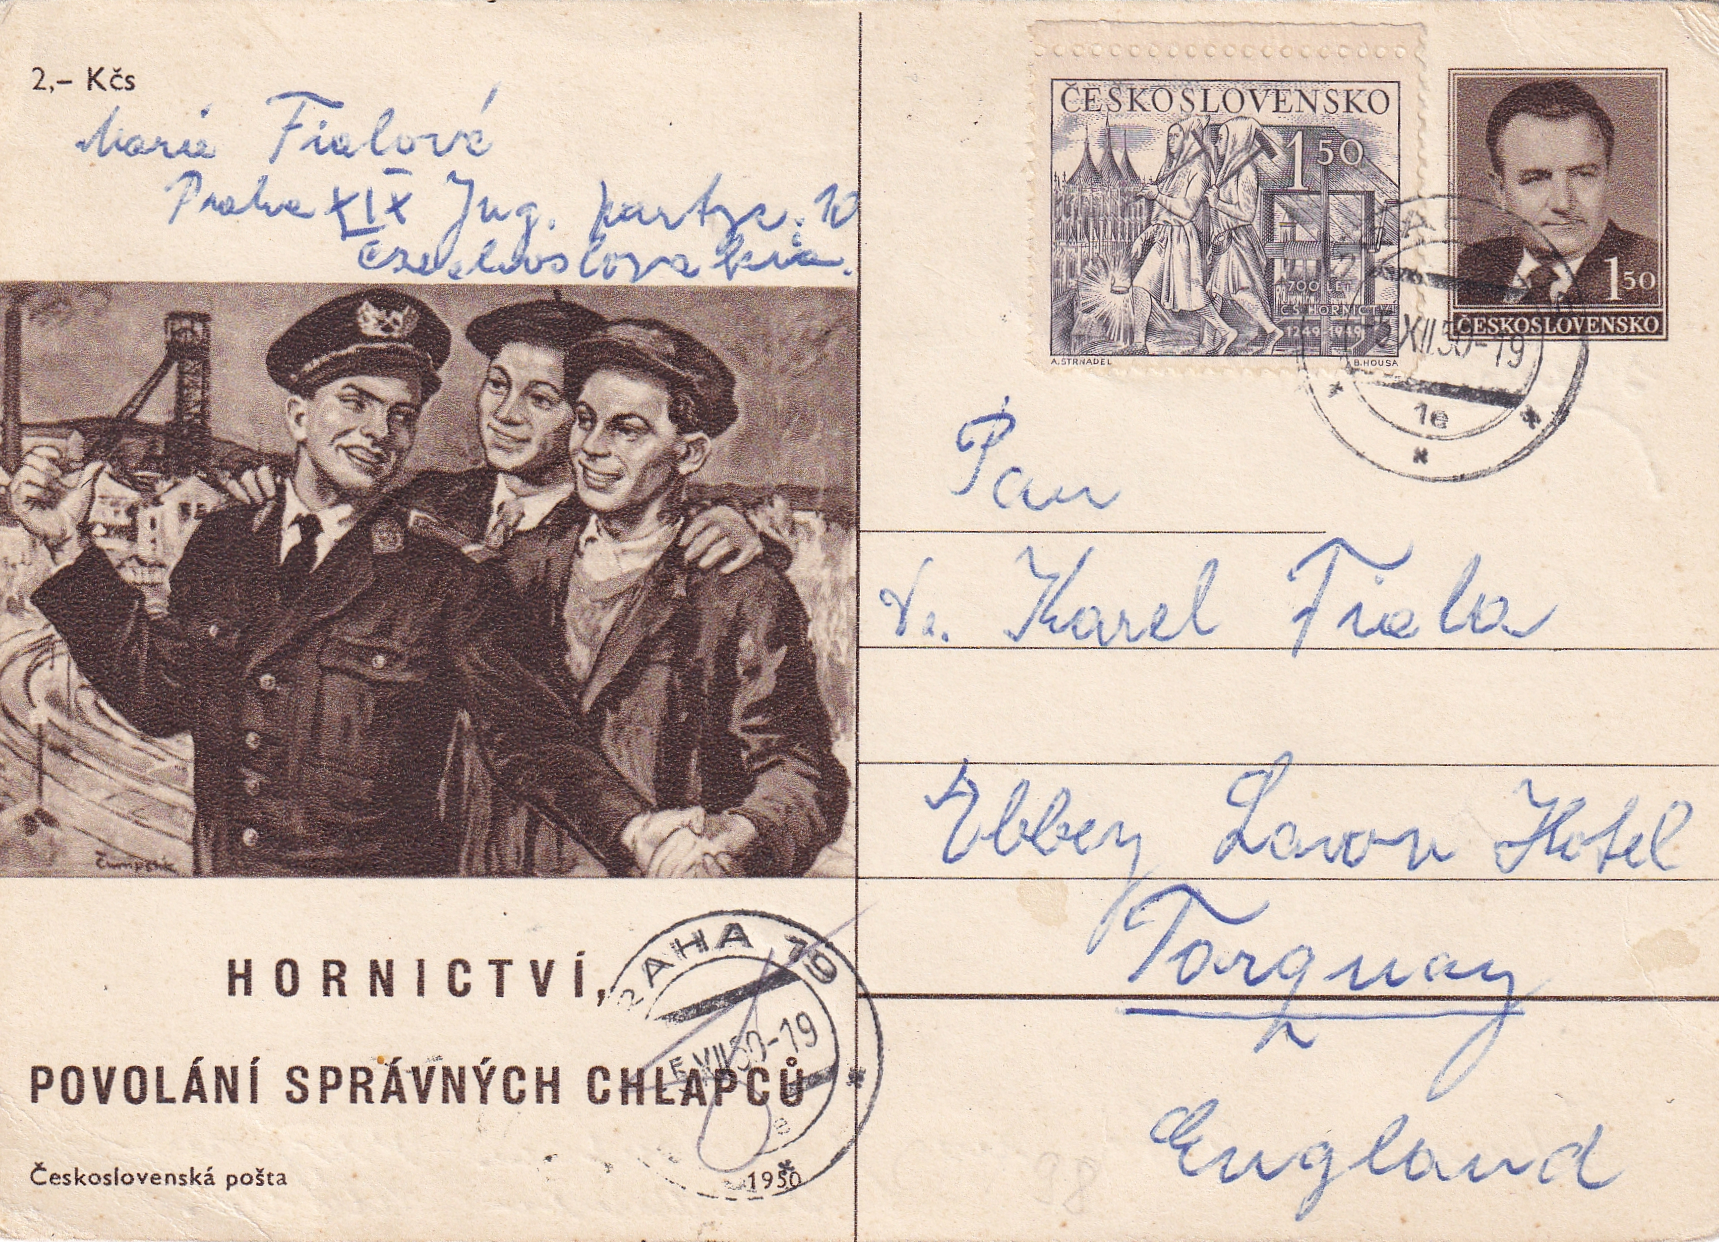 2,– Kčs
Marie Fialové
Praha XIX Jug. partyz. 10
Czechoslovakia.
ČESKOSLOVENSKO
1 50
700 LET
ČS. HORNICTVÍ
1249-1949
A. STRNADEL
B. HOUSA
1 50
ČESKOSLOVENSKO
XII 50-19
1e
Pan
Karel Fiala
Ebbey Lavon Hotel
Torquay
England
HORNICTVÍ,
POVOLÁNÍ SPRÁVNÝCH CHLAPCŮ
Československá pošta
1950
PRAHA 19
XII 50-19